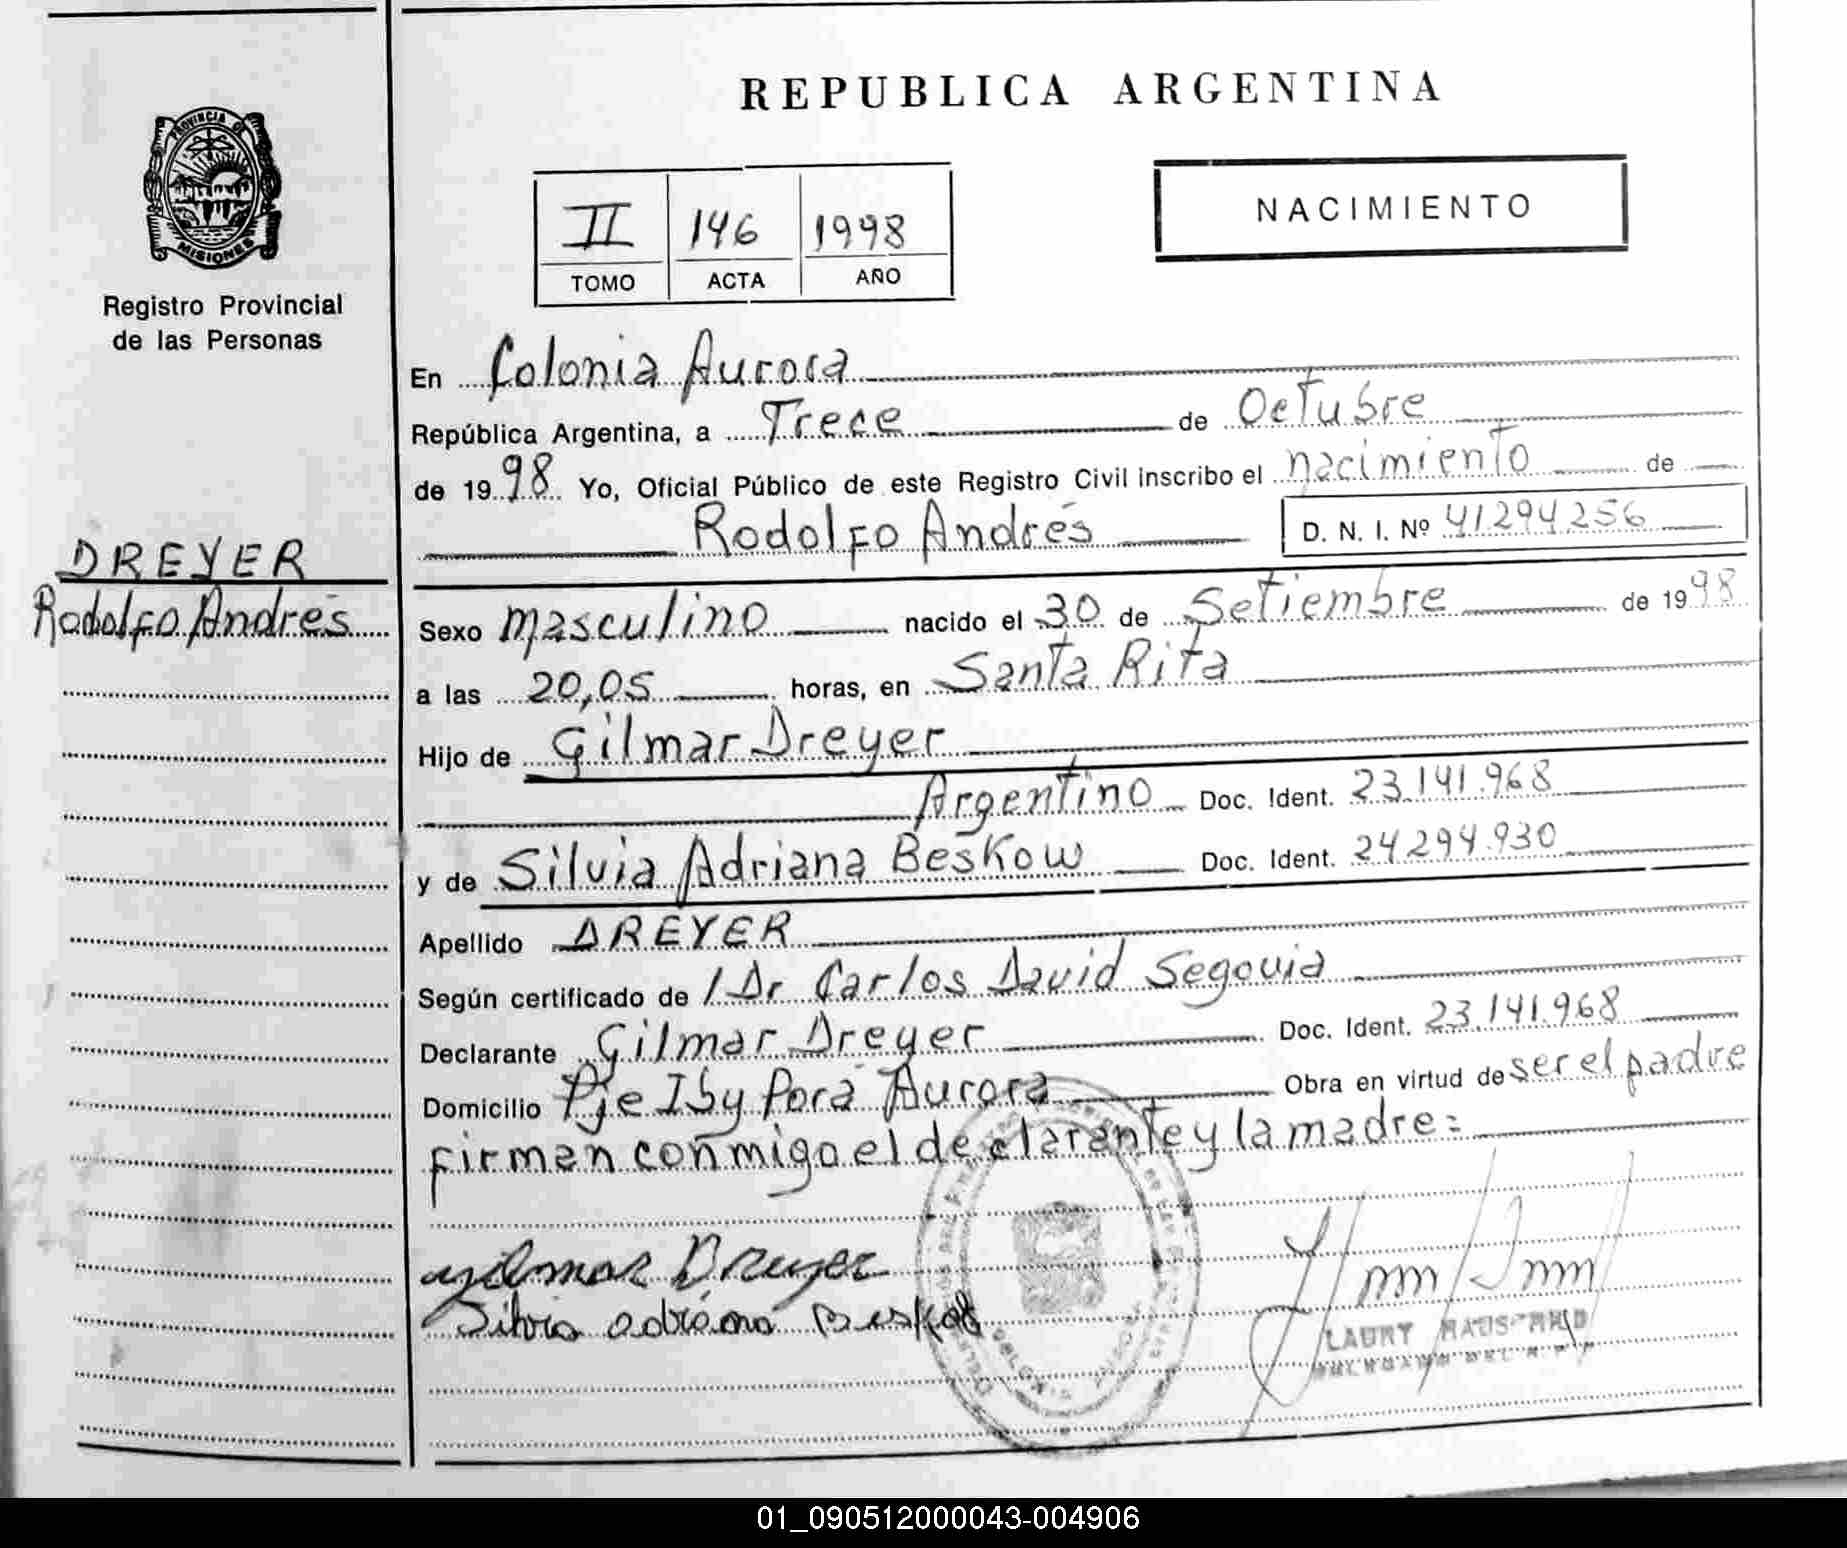 REPUBLICA ARGENTINA
PROVINCIA DE
MISIONES
Registro Provincial
de las Personas
II 146 1998
TOMO ACTA AÑO
NACIMIENTO
En Colonia Aurora
República Argentina, a Trece de Octubre
de 1998 Yo, Oficial Público de este Registro Civil inscribo el nacimiento de
Rodolfo Andrés D. N. I. Nº 41294256
DREYER
Rodolfo Andrés
Sexo masculino nacido el 30 de Setiembre de 1998
a las 20,05 horas, en Santa Rita
Hijo de Gilmar Dreyer
Argentino Doc. Ident. 23.141.968
y de Silvia Adriana Beskow Doc. Ident. 24294.930
Apellido DREYER
Según certificado de / Dr Carlos David Segovia
Declarante Gilmar Dreyer Doc. Ident. 23.141.968
Domicilio Pje Iby Porá Aurora Obra en virtud de ser el padre
firman conmigo el declarante y la madre=
Gilmar Dreyer
Silvia adriana Beskow
LAURY
01_090512000043-004906